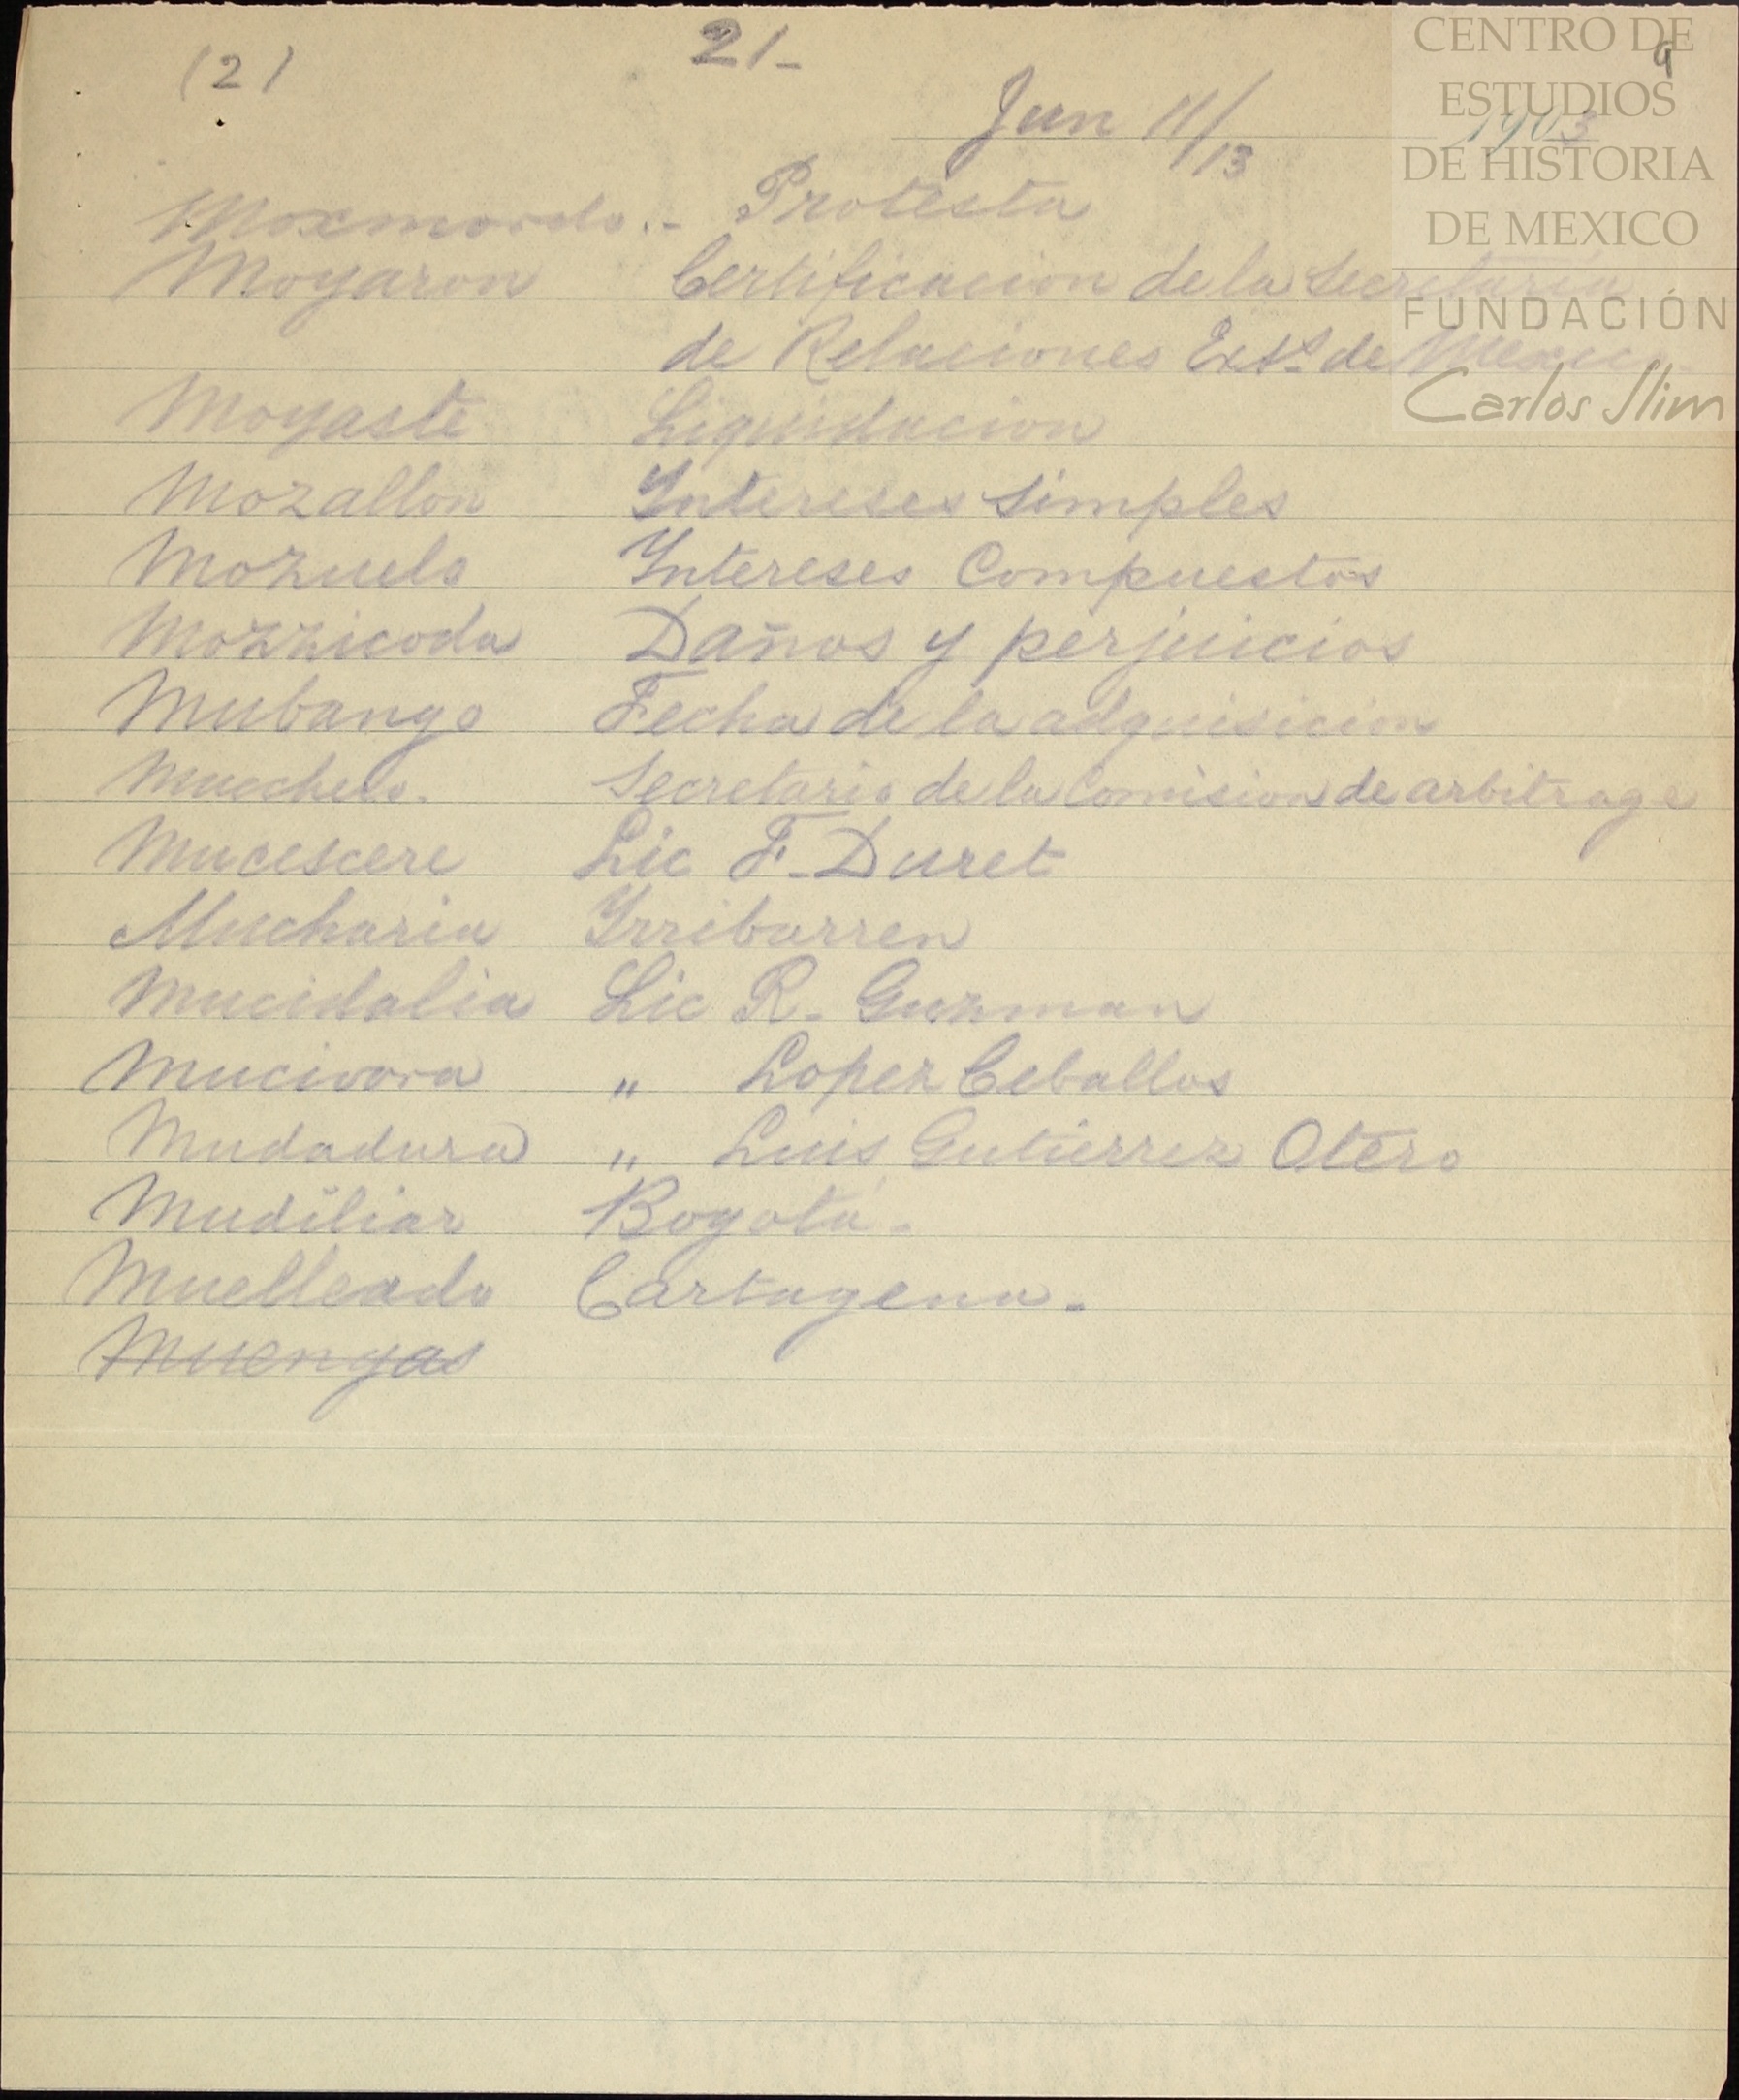 (2) 21- 9
Jun 11/13 1903
Moxmordo.- Protesta
Moyaron Certificacion de la Secretaria
de Relaciones Exts. de Mexico
Moyaste Liquidacion
Mozallon Intereses simples
Mozuelo Intereses Compuestos
Mozzicoda Daños y perjuicios
Mubango Fecha de la adquisicion
Mucchero. Secretario de la Comision de arbitrage
Mucescere Lic F. Duret
Mucharia Yrribarren
Mucidalia Lic R. Guzman
Mucivora " Lopez Ceballos
Mudadura " Luis Gutierrez Otero
Mudiliar Bogotá.
Muelleado Cartagena.
Muengas
CENTRO DE
ESTUDIOS
DE HISTORIA
DE MEXICO
FUNDACIÓN
Carlos Slim